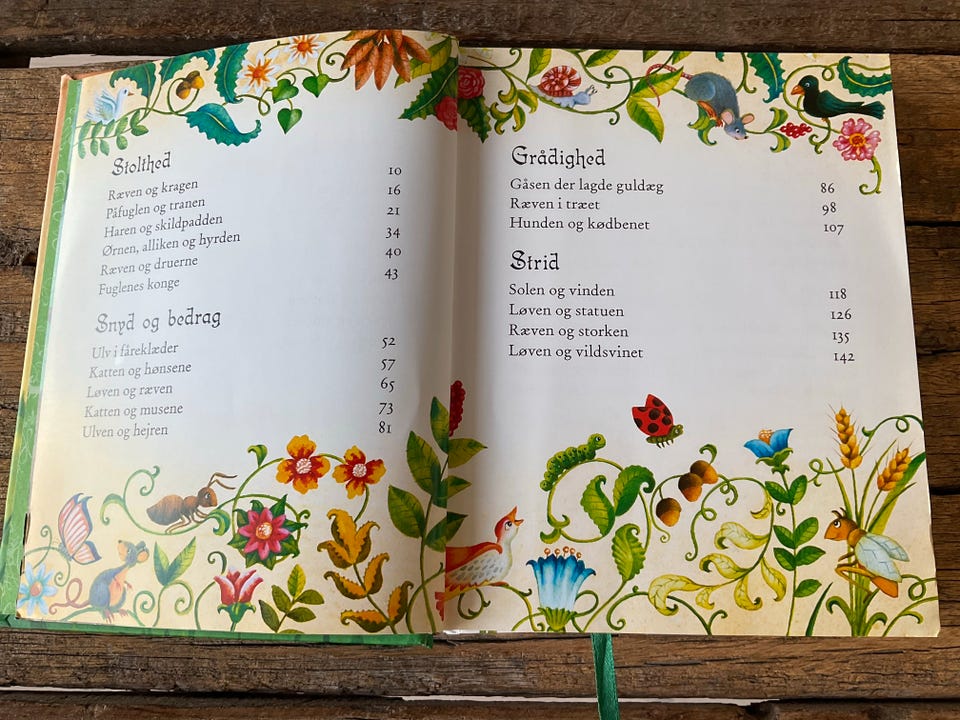 Stolthed
Ræven og kragen 10
Påfuglen og tranen 16
Haren og skildpadden 21
Ørnen, alliken og hyrden 34
Ræven og druerne 40
Fuglenes konge 43
Snyd og bedrag
Ulv i fåreklæder 52
Katten og hønsene 57
Løven og ræven 65
Katten og musene 73
Ulven og hejren 81
Grådighed
Gåsen der lagde guldæg 86
Ræven i træet 98
Hunden og kødbenet 107
Strid
Solen og vinden 118
Løven og statuen 126
Ræven og storken 135
Løven og vildsvinet 142